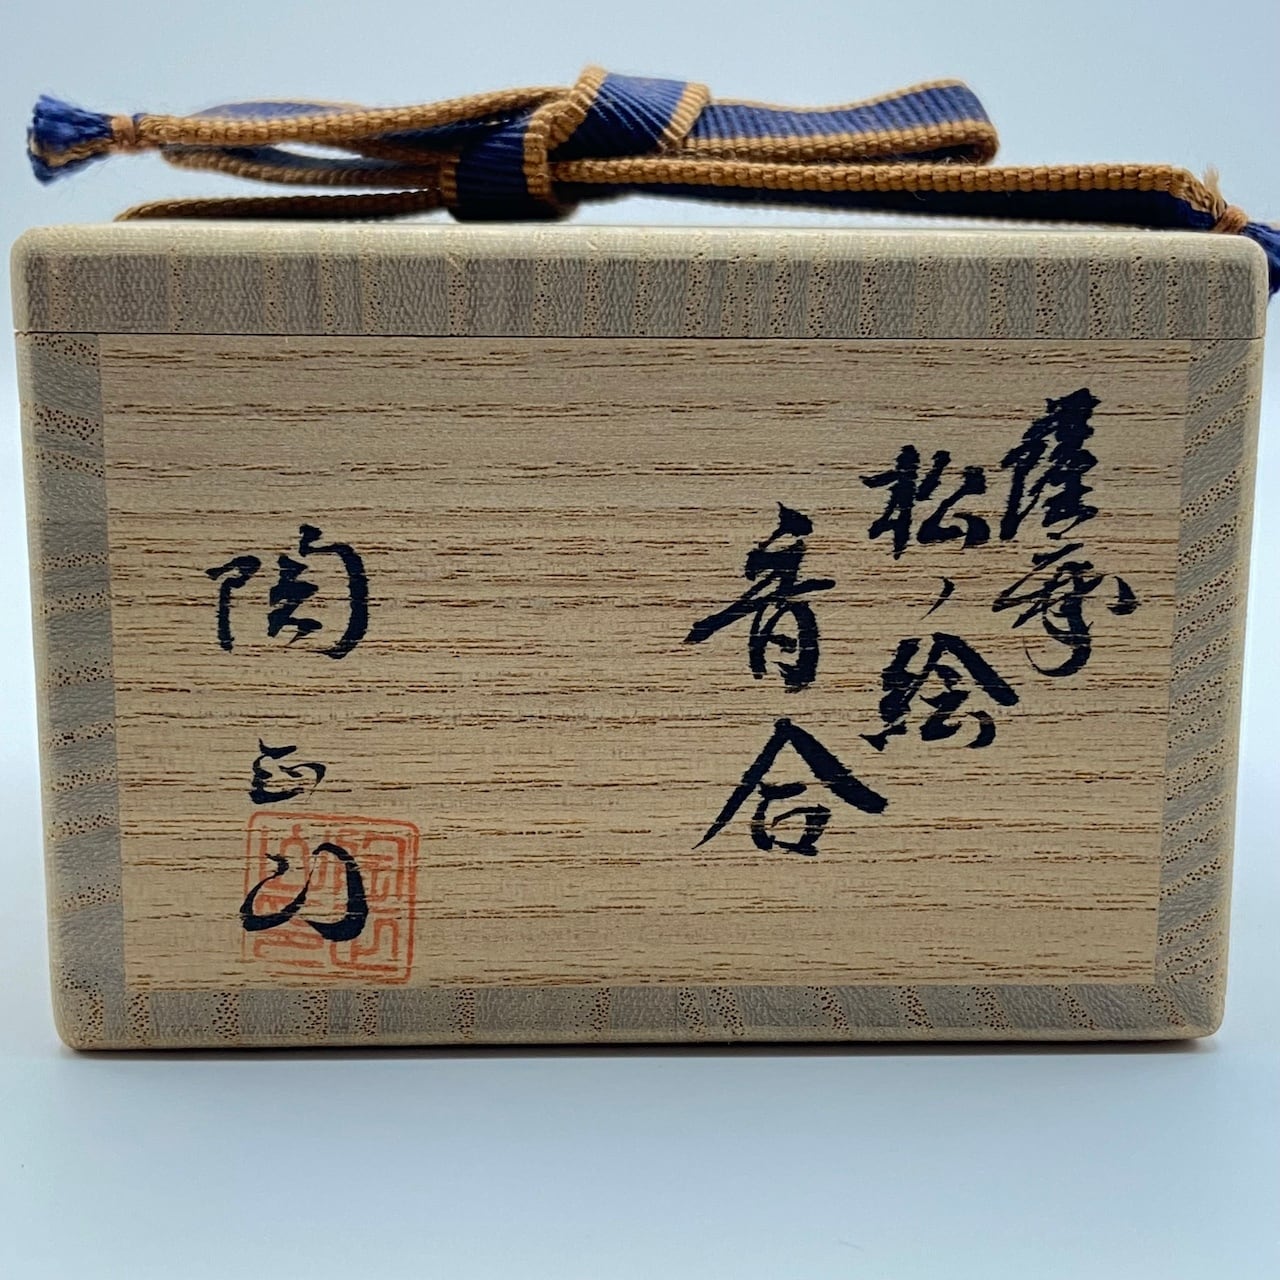 薩摩
松ノ絵
香合
陶正